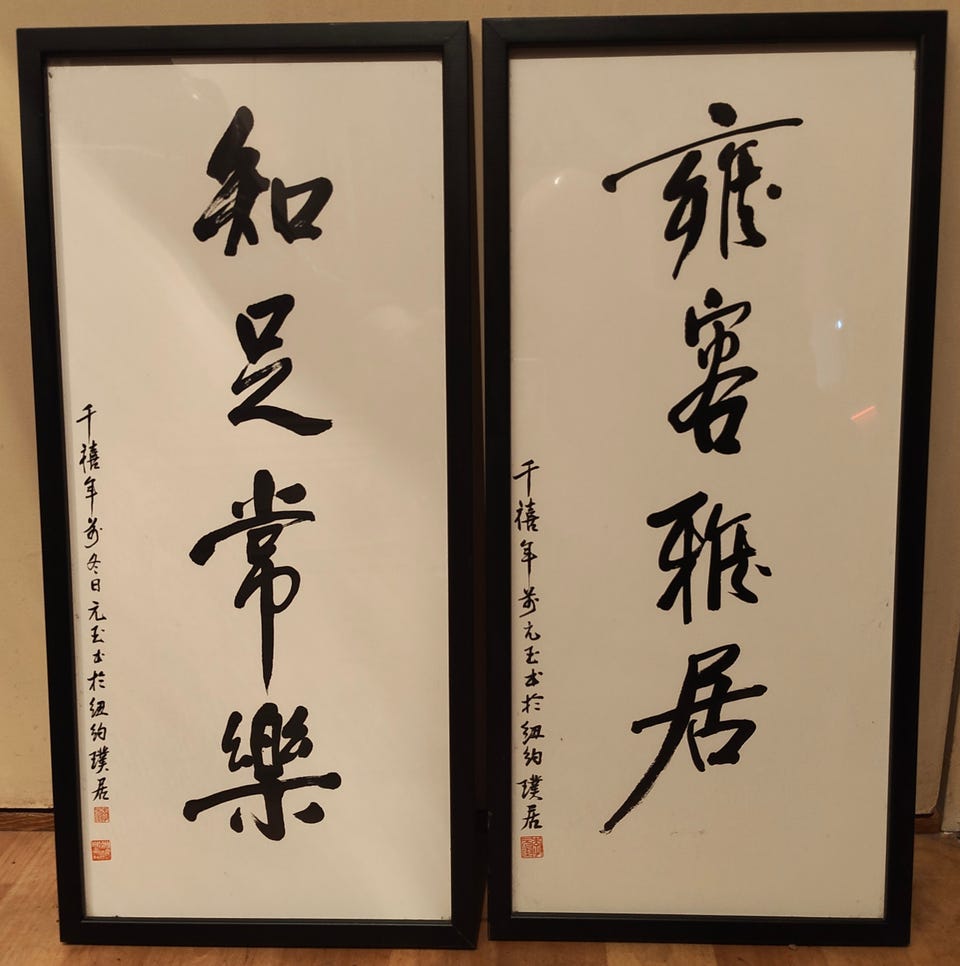 知足常樂
千禧年前冬日元玉书於紐約璞居
雍容雅居
千禧年前元玉书於紐約璞居